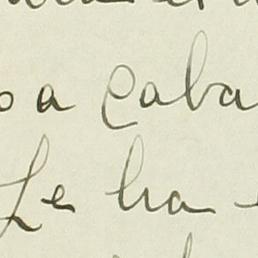 a Caba
Le ha